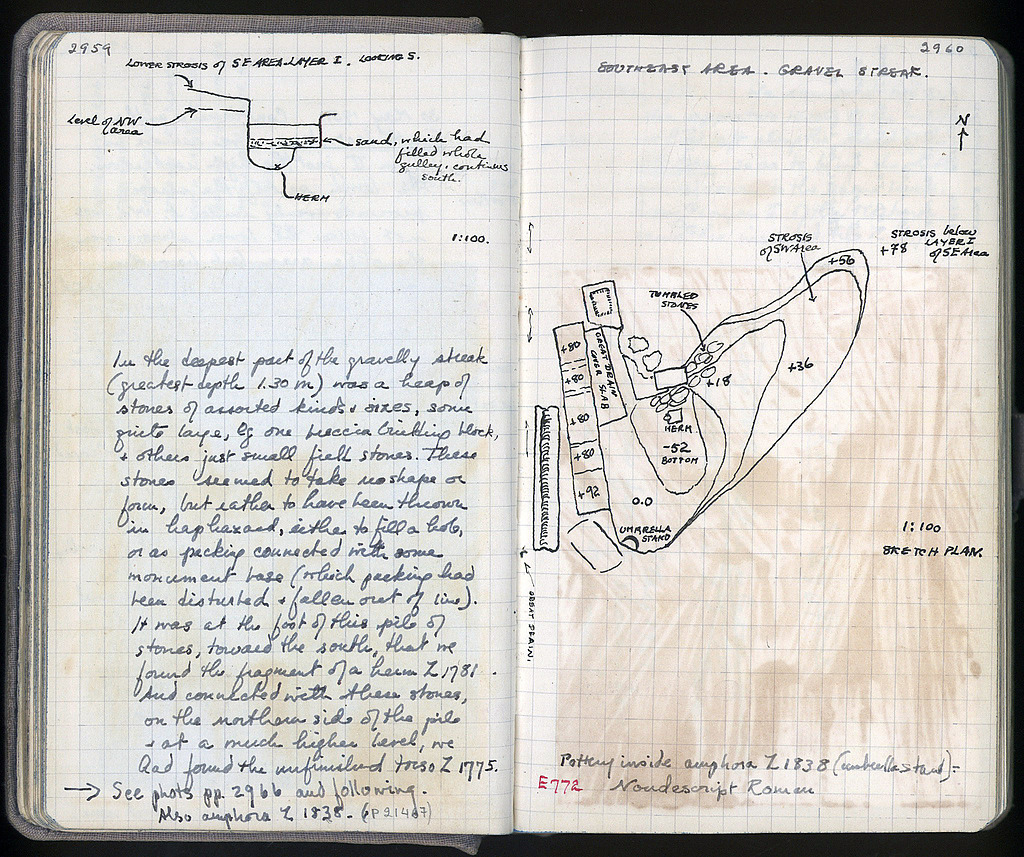 2959
LOWER STROSIS of SE AREA-LAYER I. LOOKING S.
Level of NW
area
sand, which had
filled whole
gulley, continues
south.
HERM
1:100.
In the deepest part of the gravelly streak
(greatest depth 1.30 m) was a heap of
stones of assorted kinds & sizes, some
quite large, Eg one breccia building block,
& others just small field stones. These
stones seemed to take no shape or
form, but rather to have been thrown
in haphazard, either to fill a hole,
or as packing connected with some
monument base (which packing had
been disturbed & fallen out of line).
It was at the foot of this pile of
stones, toward the south, that we
found the fragment of a herm Σ 1781.
And connected with these stones,
on the northern side of the pile
& at a much higher level, we
had found the unfinished torso Σ 1775.
→ See phots pp. 2966 and following.
Also amphora Σ 1838. (P 21407)
2960
SOUTHEAST AREA. GRAVEL STREAK.
N
STROSIS
of SW Area
STROSIS below
LAYER I
of SE Area
+78
+56
TUMBLED
STONES
GREAT DRAIN
COVER SLAB
+80
+80
+80
+80
+92
+36
+18
HERM
-52
BOTTOM
0.0
UMBRELLA
STAND
1:100
SKETCH PLAN.
GREAT DRAIN.
Pottery inside amphora Σ 1838 (umbrella stand) =
E772 Nondescript Roman